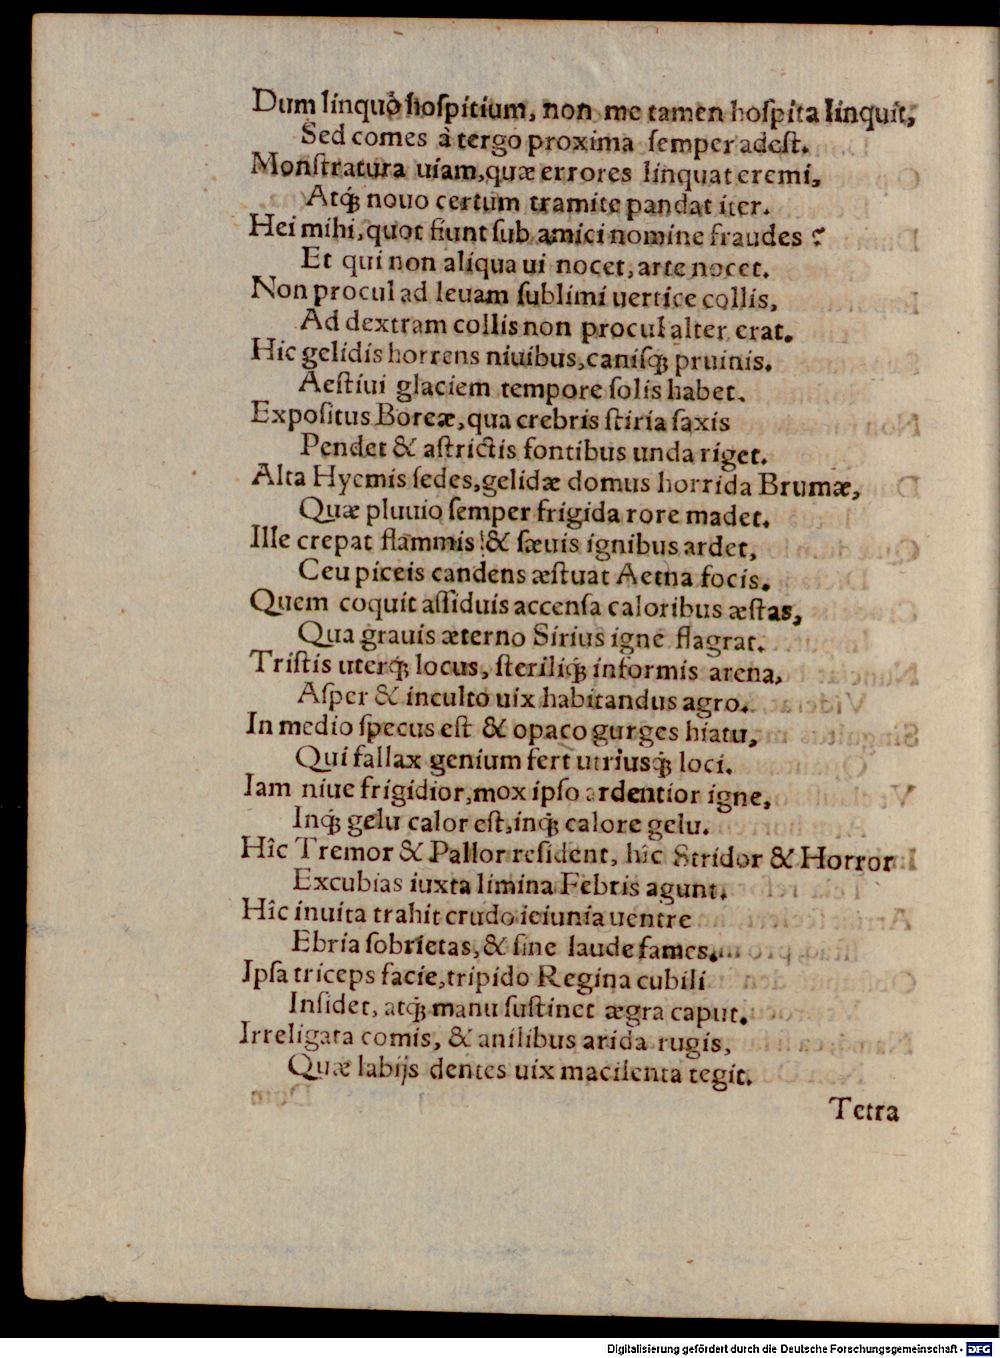 Dum linquo hoſpitium, non me tamen hoſpita linquit,
Sed comes à tergo proxima ſemper adeſt.
Monſtratura uiam, quæ errores linquat eremi,
Atq́ꝫ nouo certum tramite pandat iter.
Hei mihi, quot fiunt ſub amici nomine fraudes ?
Et qui non aliqua ui nocet, arte nocet.
Non procul ad leuam ſublimi uertice collis,
Ad dextram collis non procul alter erat.
Hic gelidis horrens niuibus, caniſq́ꝫ pruinis.
Aeſtiui glaciem tempore ſolis habet.
Expoſitus Boreæ, qua crebris ſtiria ſaxis
Pendet & aſtrictis fontibus unda riget.
Alta Hyemis ſedes, gelidæ domus horrida Brumæ,
Quæ pluuio ſemper frigida rore madet.
Ille crepat flammis & ſæuis ignibus ardet,
Ceu piceis candens æſtuat Aetna focis.
Quem coquit aſſiduis accenſa caloribus æſtas,
Qua grauis æterno Sirius igne flagrat.
Triſtis uterq́ꝫ locus, ſteriliq́ꝫ informis arena,
Aſper & inculto uix habitandus agro.
In medio ſpecus eſt & opaco gurges hiatu,
Qui fallax genium fert utriusq́ꝫ loci.
Iam niue frigidior, mox ipſo ardentior igne,
Inq́ꝫ gelu calor eſt, inq́ꝫ calore gelu.
Hîc Tremor & Pallor reſident, hîc Stridor & Horror
Excubias iuxta limina Febris agunt.
Hîc inuita trahit crudo ieiunia uentre
Ebria ſobrietas, & ſine laude fames.
Ipſa triceps facie, tripido Regina cubili
Inſidet, atq́ꝫ manu ſuſtinet ægra caput.
Irreligata comis, & anilibus arida rugis,
Quæ labijs dentes uix macilenta tegit.
Tetra
Digitalisierung gefördert durch die Deutsche Forschungsgemeinschaft - DFG